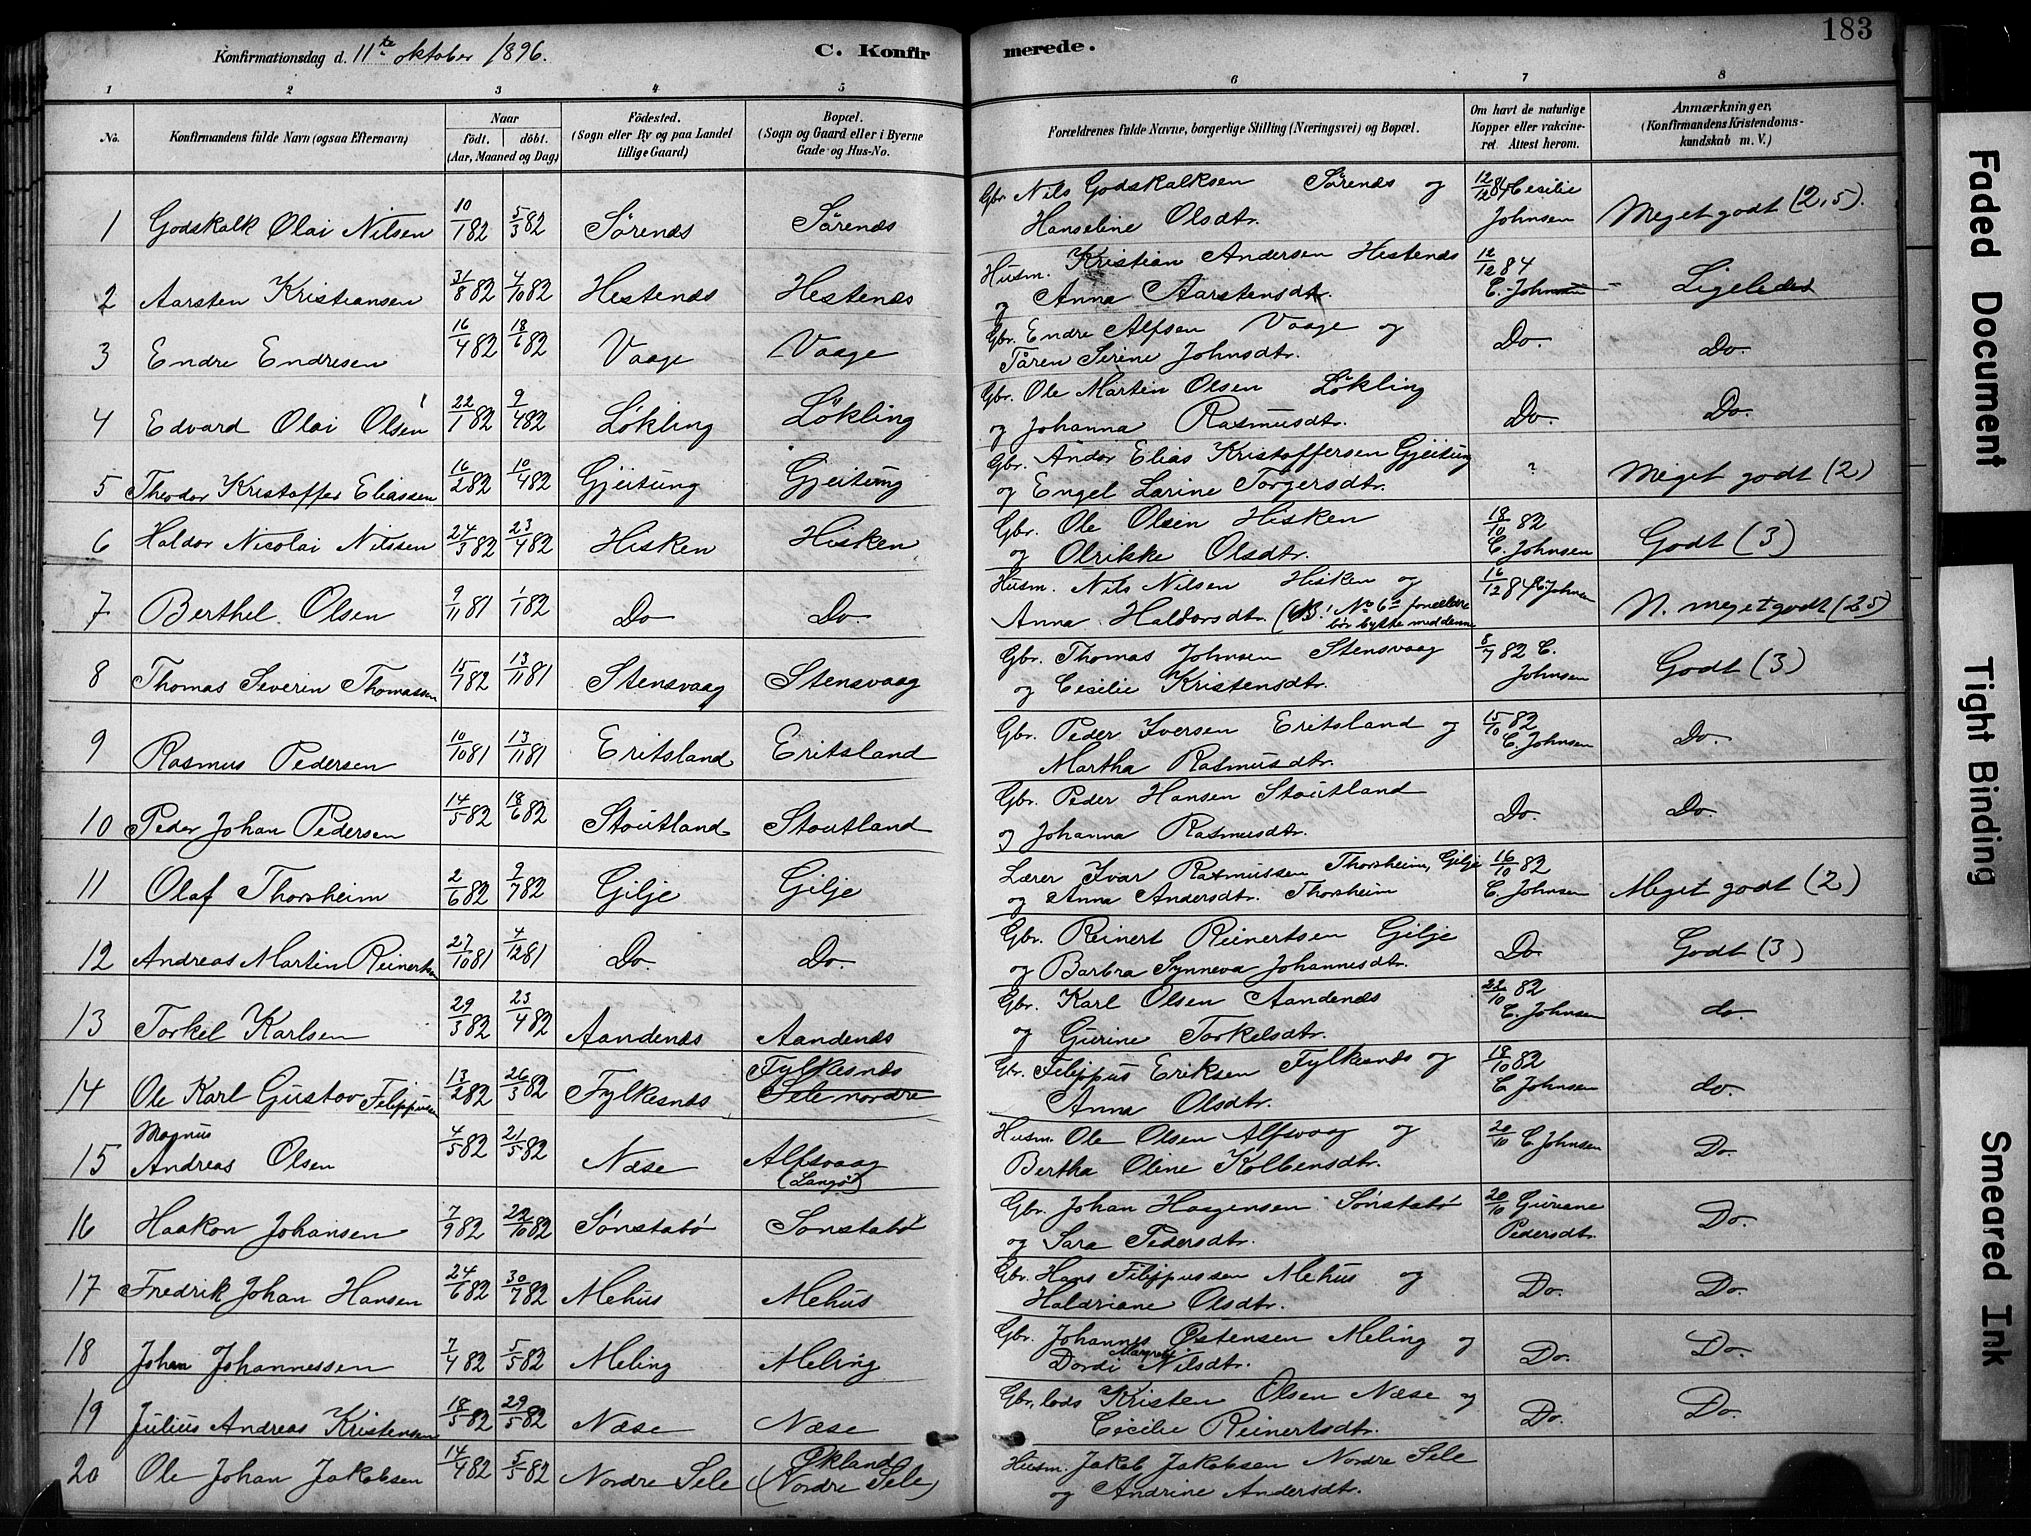 183
Konfirmationsdag d. 11te oktober 1896.
C. Konfirmerede.
1 2 3 4 5 6 7 8
No.
Konfirmandens fulde Navn (ogsaa Efternavn)
Naar
födt. döbt.
(Aar, Maaned og Dag)
Födested.
(Sogn eller By og paa Landet
tillige Gaard)
Bopæl.
(Sogn og Gaard eller i Byerne
Gade og Hus-No.
Forældrenes fulde Navne, borgerlige Stilling (Næringsvei) og Bopæl.
Om havt de naturlige
Kopper eller vakcine-
ret. Attest herom.
Anmærkninger.
(Konfirmandens Kristendoms-
kundskab m. V.)
1 Godskalk Olai Nilsen 10/1 82 5/3 82 Sørenæs Sørenæs Gbr. Nils Godskalksen Sørenæs og
Hanseline Olsdtr. 12/12 84 Cecilie
Johnsen Meget godt (2,5).
2 Aarsten Kristiansen 31/8 82 4/10 82 Hestenæs Hestenæs Husm. Kristian Andersen Hestenæs
og Anna Aarstensdtr. 12/12 84
C. Johnsen Ligeledes
3 Endre Endresen 16/4 82 18/6 82 Vaage Vaage Gbr. Endre Alfsen Vaage og
Tåren Serine Johnsdtr. Do. Do.
4 Edvard Olai Olsen 22/1 82 9/4 82 Løkling Løkling Gbr. Ole Martin Olsen Løkling
og Johanna Rasmusdtr. Do. Do.
5 Theodor Kristoffer Eliassen 16/2 82 10/4 82 Gjeitung Gjeitung Gbr. Andor Elias Kristoffersen Gjeitung
og Engel Larine Torgersdtr. ? Meget godt (2)
6 Haldor Nicolai Nilssen 24/3 82 23/4 82 Hisken Hisken Gbr. Ole Olsen Hisken
og Olrikke Olsdtr. 18/10 82
C. Johnsen Godt (3)
7 Berthel Olsen 9/11 81 1/1 82 Do Do. Husm. Nils Nilsen Hisken og
Anna Haldorsdtr. (NB! No 6s forældre
bør bytte med denne 16/12 84 C. Johnsen N. meget godt (25)
8 Thomas Severin Thomassen 15/7 82 13/11 81 Stensvaag Stensvaag Gbr. Thomas Johnsen Stensvaag
og Cecilie Kristensdtr. 8/7 82 C.
Johnsen Godt (3)
9 Rasmus Pedersen 10/10 81 13/11 81 Eritsland Eritsland Gbr. Peder Iversen Eritsland og
Martha Rasmusdtr. 15/10 82
C. Johnsen Do.
10 Peder Johan Pedersen 14/5 82 18/6 82 Stoutland Stoutland Gbr. Peder Hansen Stoutland
og Johanna Rasmusdtr. Do. Do.
11 Olaf Thorsheim 2/6 82 9/7 82 Gilje Gilje Lærer Ivar Rasmussen Thorsheim, Gilje
og Anna Andersdtr. Thorsheim 16/10 82
C. Johnsen Meget godt (2)
12 Andreas Martin Reinertsen 27/10 81 4/12 81 Do. Do. Gbr. Reinert Reinertsen Gilje
og Barbra Synneva Johannesdtr. Do. Godt (3)
13 Torkel Karlsen 29/3 82 23/4 82 Aandenæs Aandenæs Gbr. Karl Olsen Aandenæs
og Gurine Torkelsdtr. 22/10 82
C. Johnsen do
14 Ole Karl Gustav Filippusen 13/2 82 26/3 82 Fylkesnæs Fylkesnæs
Sele nordre Gbr. Filippus Eriksen Fylkesnæs og
Anna Olsdtr. 18/10 82
C. Johnsen do.
15 Magnus
Andreas Olsen 4/5 82 21/5 82 Næse Alfsvaag
(Langø) Husm. Ole Olsen Alfsvaag og
Bertha Oline Kolbensdtr. 20/10 C. Johnsen Do.
16 Haakon Johansen 7/9 82 22/10 82 Sønstabø Sønstabø Gbr. Johan Haagensen Sønstabø
og Sara Pedersdtr. 20/10 Guriane
Pedersdtr. Do.
17 Fredrik Johan Hansen 24/6 82 30/7 82 Mehus Mehus Gbr. Hans Filippussen Mehus og
Haldriane Olsdtr. Do. Do.
18 Johan Johannessen 7/4 82 5/5 82 Meling Meling Gbr. Johannes Østensen Meling og
Dordi Margrete Nilsdtr. Do. Do.
19 Julius Andreas Kristensen 18/5 82 29/5 82 Næse Næse Gbr, lods Kristen Olsen Næse og
Cecilie Reinertsdtr. Do. Do.
20 Ole Johan Jakobsen 14/4 82 5/5 82 Nordre Sele Økland
(Nordre Sele) Husm. Jakob Jakobsen Nordre Sele
og Andrine Andersdtr.
Faded Document
Tight Binding
Smeared Ink